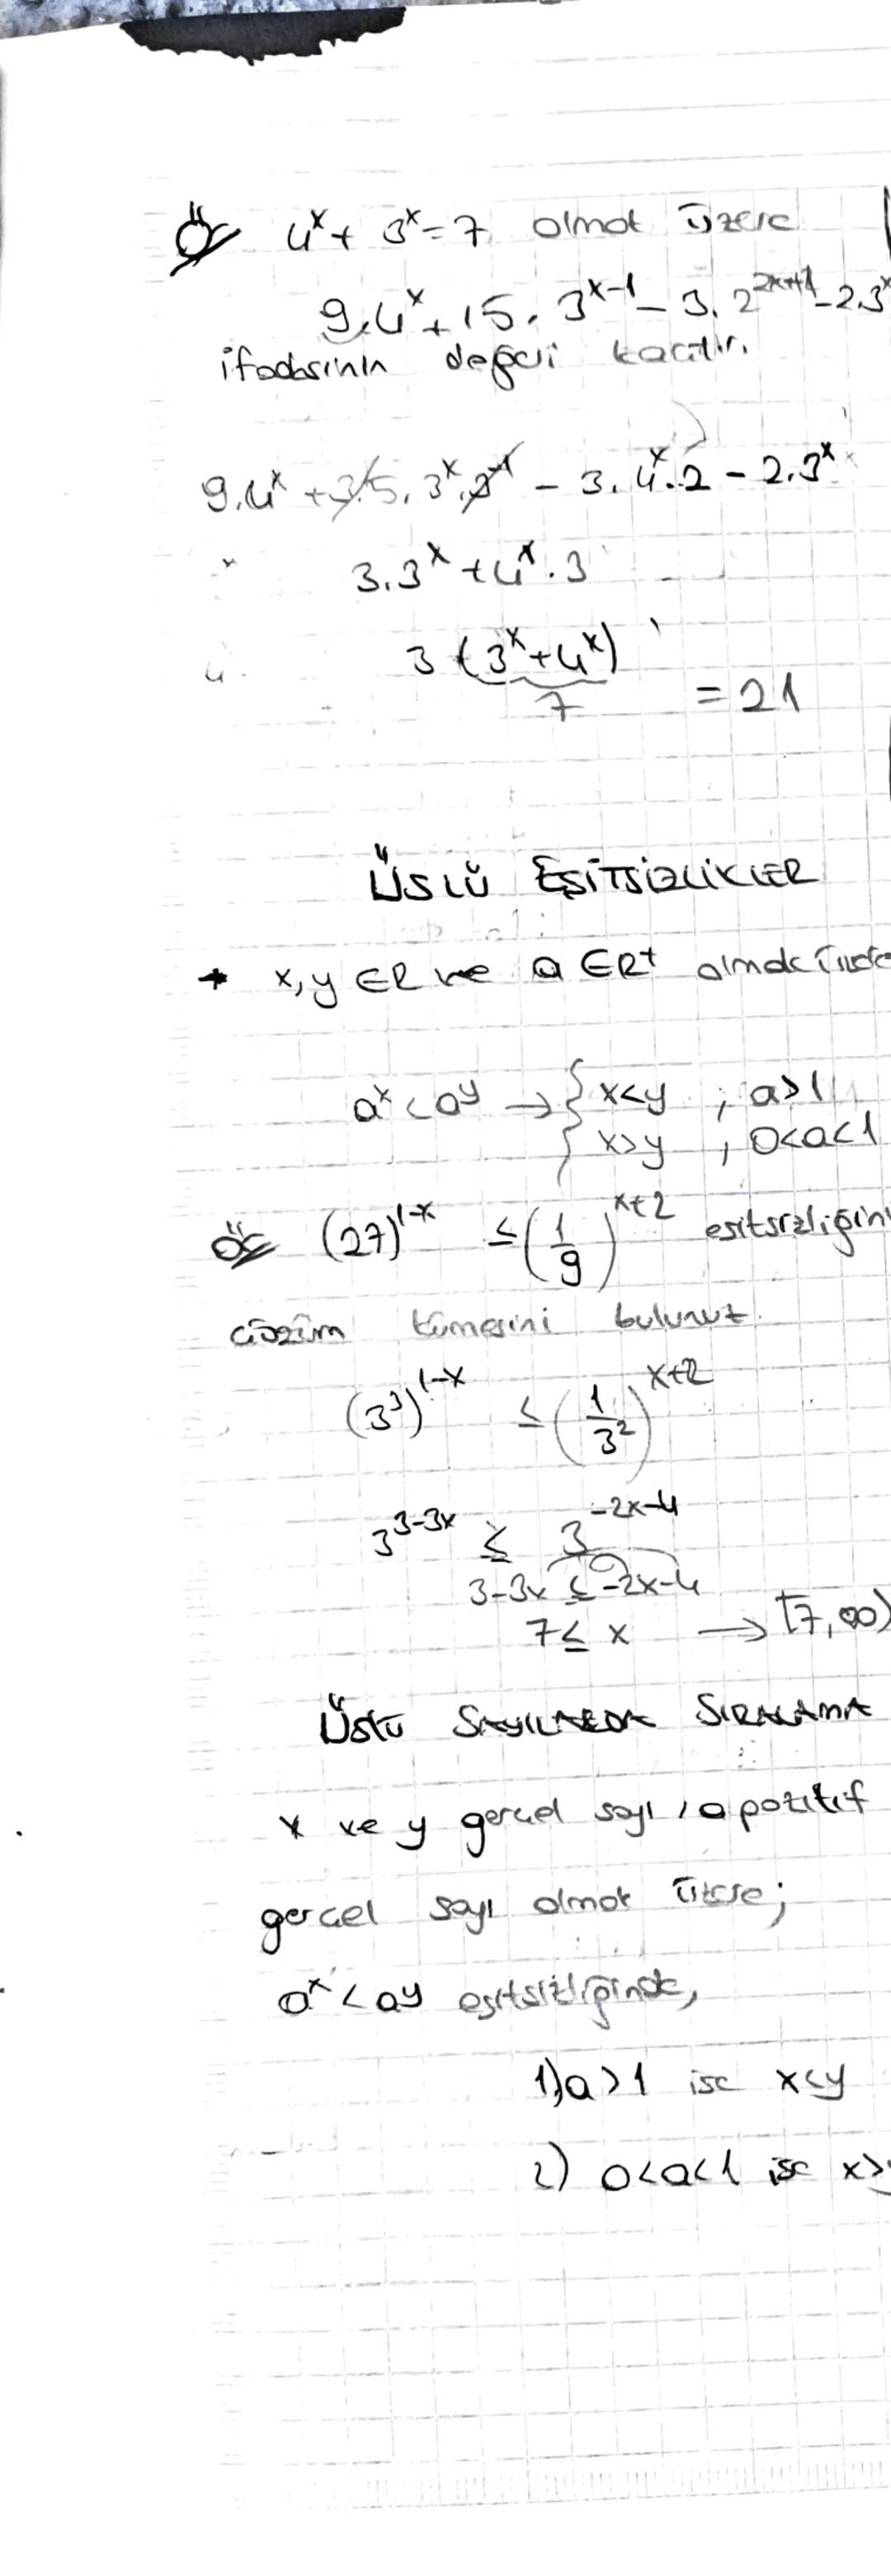 Ör/ 4ˣ + 3ˣ = 7 olmak üzere
9.4ˣ + 15.3ˣ⁻¹ - 3.2²ˣ⁺¹ - 2.3ˣ
ifadesinin değeri kaçtır.
9.4ˣ + 3.5.3ˣ.3⁻¹ - 3.4ˣ.2 - 2.3ˣ
3.3ˣ + 4ˣ.3
3 (3ˣ + 4ˣ)
7 = 21
ÜSLÜ EŞİTSİZLİKLER
→ x, y ∈ R ve a ∈ R⁺ olmak üzere
aˣ < aʸ → { x < y , a > 1
x > y , 0 < a < 1
Ör/ (27)¹⁻ˣ ≤ (1/9)ˣ⁺² eşitsizliğini
çözüm kümesini bulunuz.
(3³)¹⁻ˣ ≤ (1/3²)ˣ⁺²
3³⁻³ˣ ≤ 3⁻²ˣ⁻⁴
3-3x ≤ -2x-4
7 ≤ x → [7, ∞)
ÜSLÜ SAYILARDA SIRALAMA
x ve y gerçel sayı, a pozitif
gerçel sayı olmak üzere;
aˣ < aʸ eşitsizliğinde,
1) a > 1 ise x < y
2) 0 < a < 1 ise x >